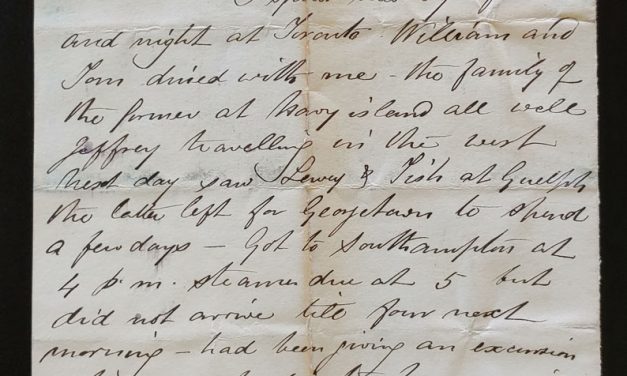 and night at Toronto. William and
Tom dined with me - the family of
the former at Navy island all well
Jeffrey travelling in the west
next day saw Lewey & Tish at Guelph
the latter left for Georgetown to spend
a few days - Got to Southampton at
4 p.m. steamer due at 5 but
did not arrive till four next
morning - had been giving an excursion